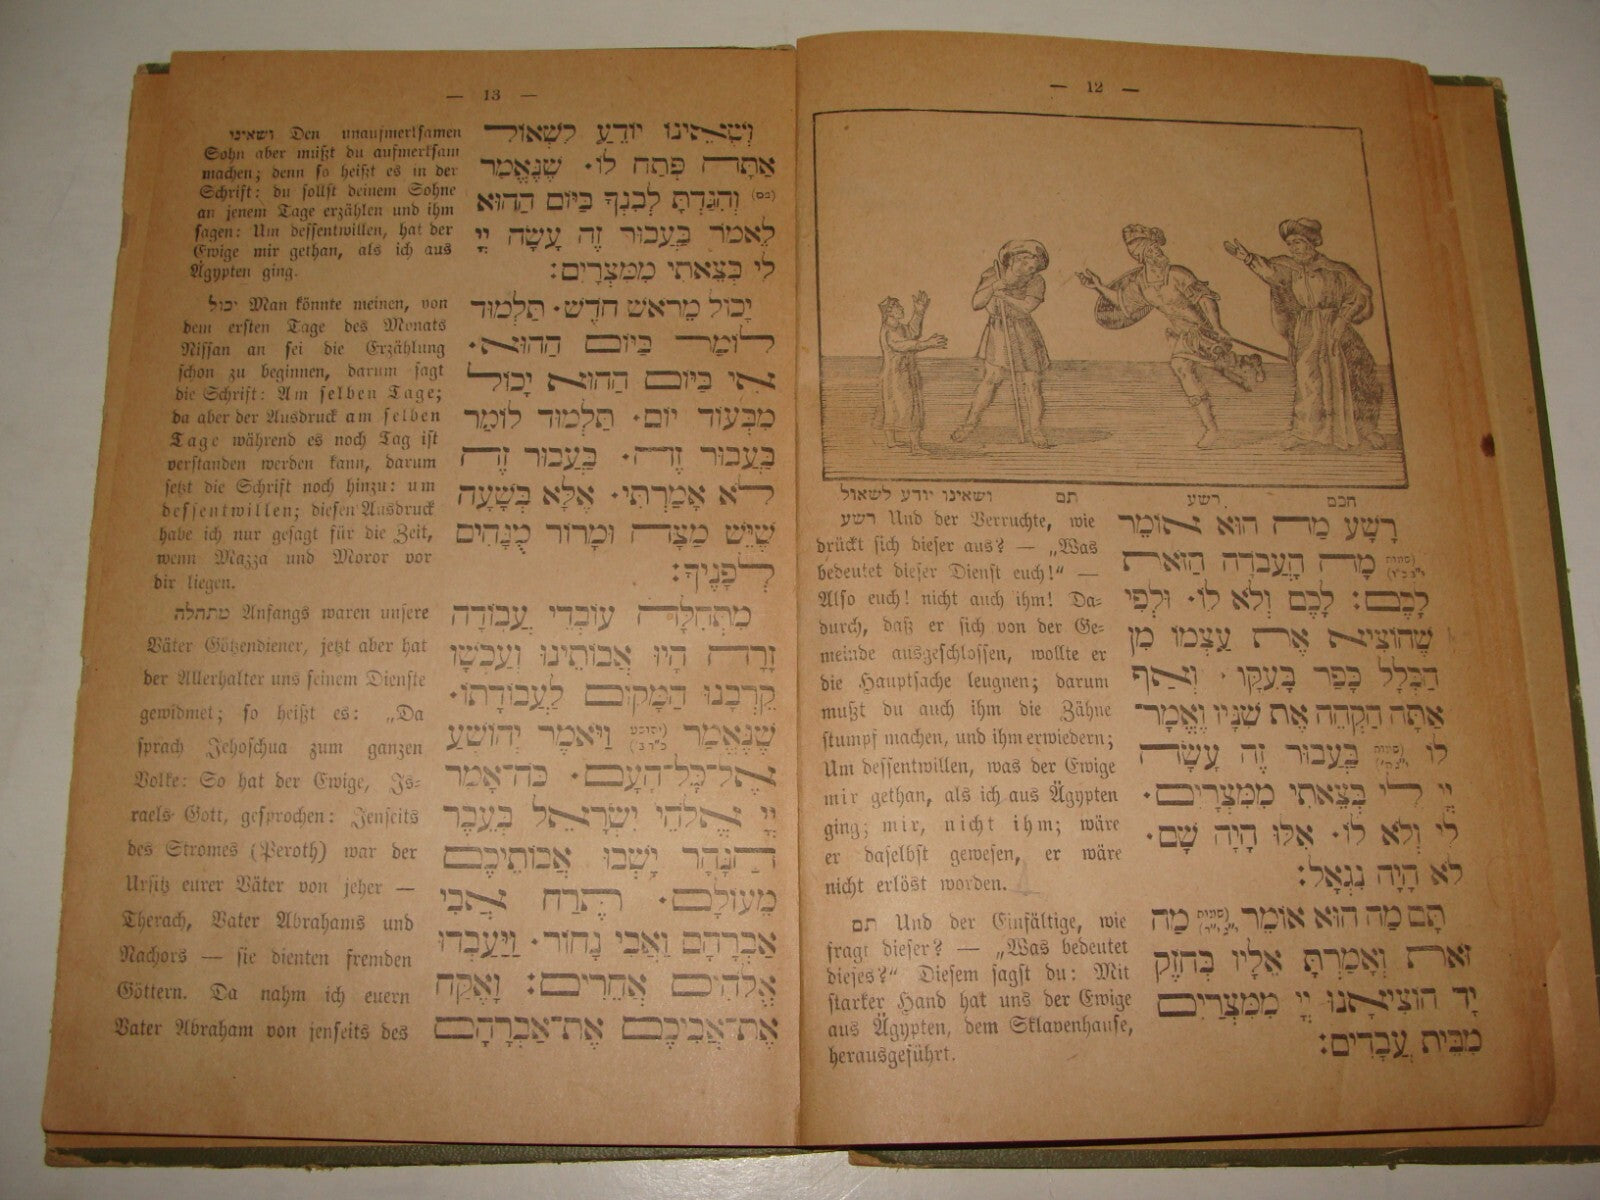 — 12 —
חכם רשע תם ושאינו יודע לשאול
רָשָׁע מַה הוּא אוֹמֵר
מָה הָעֲבֹדָה הַזֹּאת
לָכֶם: לָכֶם וְלֹא לוֹ· וּלְפִי
שֶׁהוֹצִיא אֶת עַצְמוֹ מִן
הַכְּלָל כָּפַר בָּעִקָּר· וְאַף
אַתָּה הַקְהֵה אֶת שִׁנָּיו וֶאֱמָר־
לוֹ בַּעֲבוּר זֶה עָשָׂה
יְיָ לִי בְּצֵאתִי מִמִּצְרַיִם·
לִי וְלֹא לוֹ· אִלּוּ הָיָה שָׁם·
לֹא הָיָה נִגְאָל:
תָּם מַה הוּא אוֹמֵר מַה
זֹאת וְאָמַרְתָּ אֵלָיו בְּחֹזֶק
יָד הוֹצִיאָנוּ יְיָ מִמִּצְרַיִם
מִבֵּית עֲבָדִים:
רשע Und der Verruchte, wie
drückt sich dieser aus? — „Was
bedeutet dieser Dienst euch!“ —
Also euch! nicht auch ihm! Da-
durch, daß er sich von der Ge-
meinde ausgeschlossen, wollte er
die Hauptsache leugnen; darum
mußt du auch ihm die Zähne
stumpf machen, und ihm erwiedern;
Um dessentwillen, was der Ewige
mir gethan, als ich aus Ägypten
ging; mir, nicht ihm; wäre
er daselbst gewesen, er wäre
nicht erlöst worden.
תם Und der Einfältige, wie
fragt dieser? — „Was bedeutet
dieses?“ Diesem sagst du: Mit
starker Hand hat uns der Ewige
aus Ägypten, dem Sklavenhause,
herausgeführt.
— 13 —
וְשֶׁאֵינוֹ יוֹדֵעַ לִשְׁאוֹל
אַתָּה פְּתַח לוֹ· שֶׁנֶּאֱמַר
(שם) וְהִגַּדְתָּ לְבִנְךָ בַּיּוֹם הַהוּא
לֵאמֹר בַּעֲבוּר זֶה עָשָׂה יְיָ
לִי בְּצֵאתִי מִמִּצְרָיִם:
יָכוֹל מֵרֹאשׁ חֹדֶשׁ· תַּלְמוּד
לוֹמַר בַּיּוֹם הַהוּא·
אִי בַּיּוֹם הַהוּא יָכוֹל
מִבְּעוֹד יוֹם· תַּלְמוּד לוֹמַר
בַּעֲבוּר זֶה· בַּעֲבוּר זֶה
לֹא אָמַרְתִּי· אֶלָּא בְּשָׁעָה
שֶׁיֵּשׁ מַצָּה וּמָרוֹר מֻנָּחִים
לְפָנֶיךָ:
מִתְּחִלָּה עוֹבְדֵי עֲבוֹדָה
זָרָה הָיוּ אֲבוֹתֵינוּ וְעַכְשָׁו
קֵרְבָנוּ הַמָּקוֹם לַעֲבוֹדָתוֹ·
שֶׁנֶּאֱמַר וַיֹּאמֶר יְהוֹשֻׁעַ
אֶל־כָּל־הָעָם· כֹּה־אָמַר
יְיָ אֱלֹהֵי יִשְׂרָאֵל בְּעֵבֶר
הַנָּהָר יָשְׁבוּ אֲבוֹתֵיכֶם
מֵעוֹלָם· תֶּרַח אֲבִי
אַבְרָהָם וַאֲבִי נָחוֹר· וַיַּעַבְדוּ
אֱלֹהִים אֲחֵרִים: וָאֶקַּח
אֶת־אֲבִיכֶם אֶת־אַבְרָהָם
ושאינו Den unaufmerksamen
Sohn aber mußt du aufmerksam
machen; denn so heißt es in der
Schrift: du sollst deinem Sohne
an jenem Tage erzählen und ihm
sagen: Um dessentwillen, hat der
Ewige mir gethan, als ich aus
Ägypten ging.
יכול Man könnte meinen, von
dem ersten Tage des Monats
Nissan an sei die Erzählung
schon zu beginnen, darum sagt
die Schrift: Am selben Tage;
da aber der Ausdruck am selben
Tage während es noch Tag ist
verstanden werden kann, darum
setzt die Schrift noch hinzu: um
dessentwillen; diesen Ausdruck
habe ich nur gesagt für die Zeit,
wenn Mazza und Moror vor
dir liegen.
מתחלה Anfangs waren unsere
Väter Götzendiener, jetzt aber hat
der Allerhalter uns seinem Dienste
gewidmet; so heißt es: „Da
sprach Jehoschua zum ganzen
Volke: So hat der Ewige, Is-
raels Gott, gesprochen: Jenseits
des Stromes (Peroth) war der
Ursitz eurer Väter von jeher —
Therach, Vater Abrahams und
Nachors — sie dienten fremden
Göttern. Da nahm ich euern
Vater Abraham von jenseits des